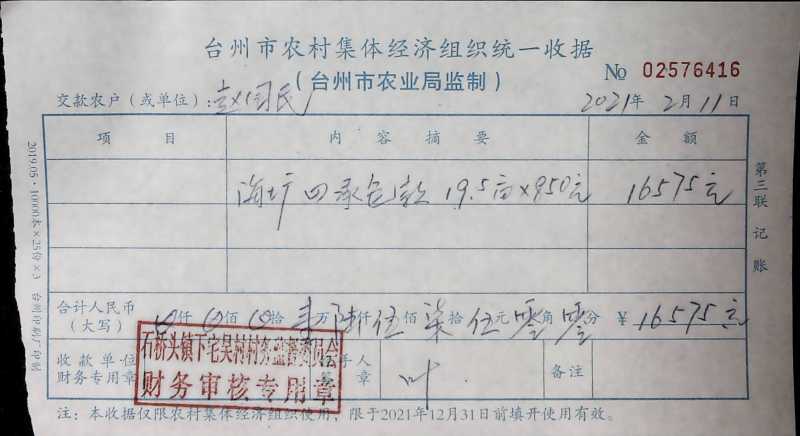 台州市农村集体经济组织统一收据
(台州市农业局监制)
№ 02576416
交款农户（或单位）：赵国民
2021年 2月 11日
项 目 内 容 摘 要 金 额
海圹四承包款 19.5亩×950元 16575元
合计人民币（大写） 仟 佰 拾 万陆仟伍佰柒拾伍元零角零分 ¥ 16575元
收款单位财务专用章 手人 章 叶 备注
石桥头镇下宅吴村村务监督委员会
财务审核专用章
注：本收据仅限农村集体经济组织使用，限于2021年12月31日前填开使用有效。
第三联 记账
2019.05·10000本×25份×3 台州印刷厂印制